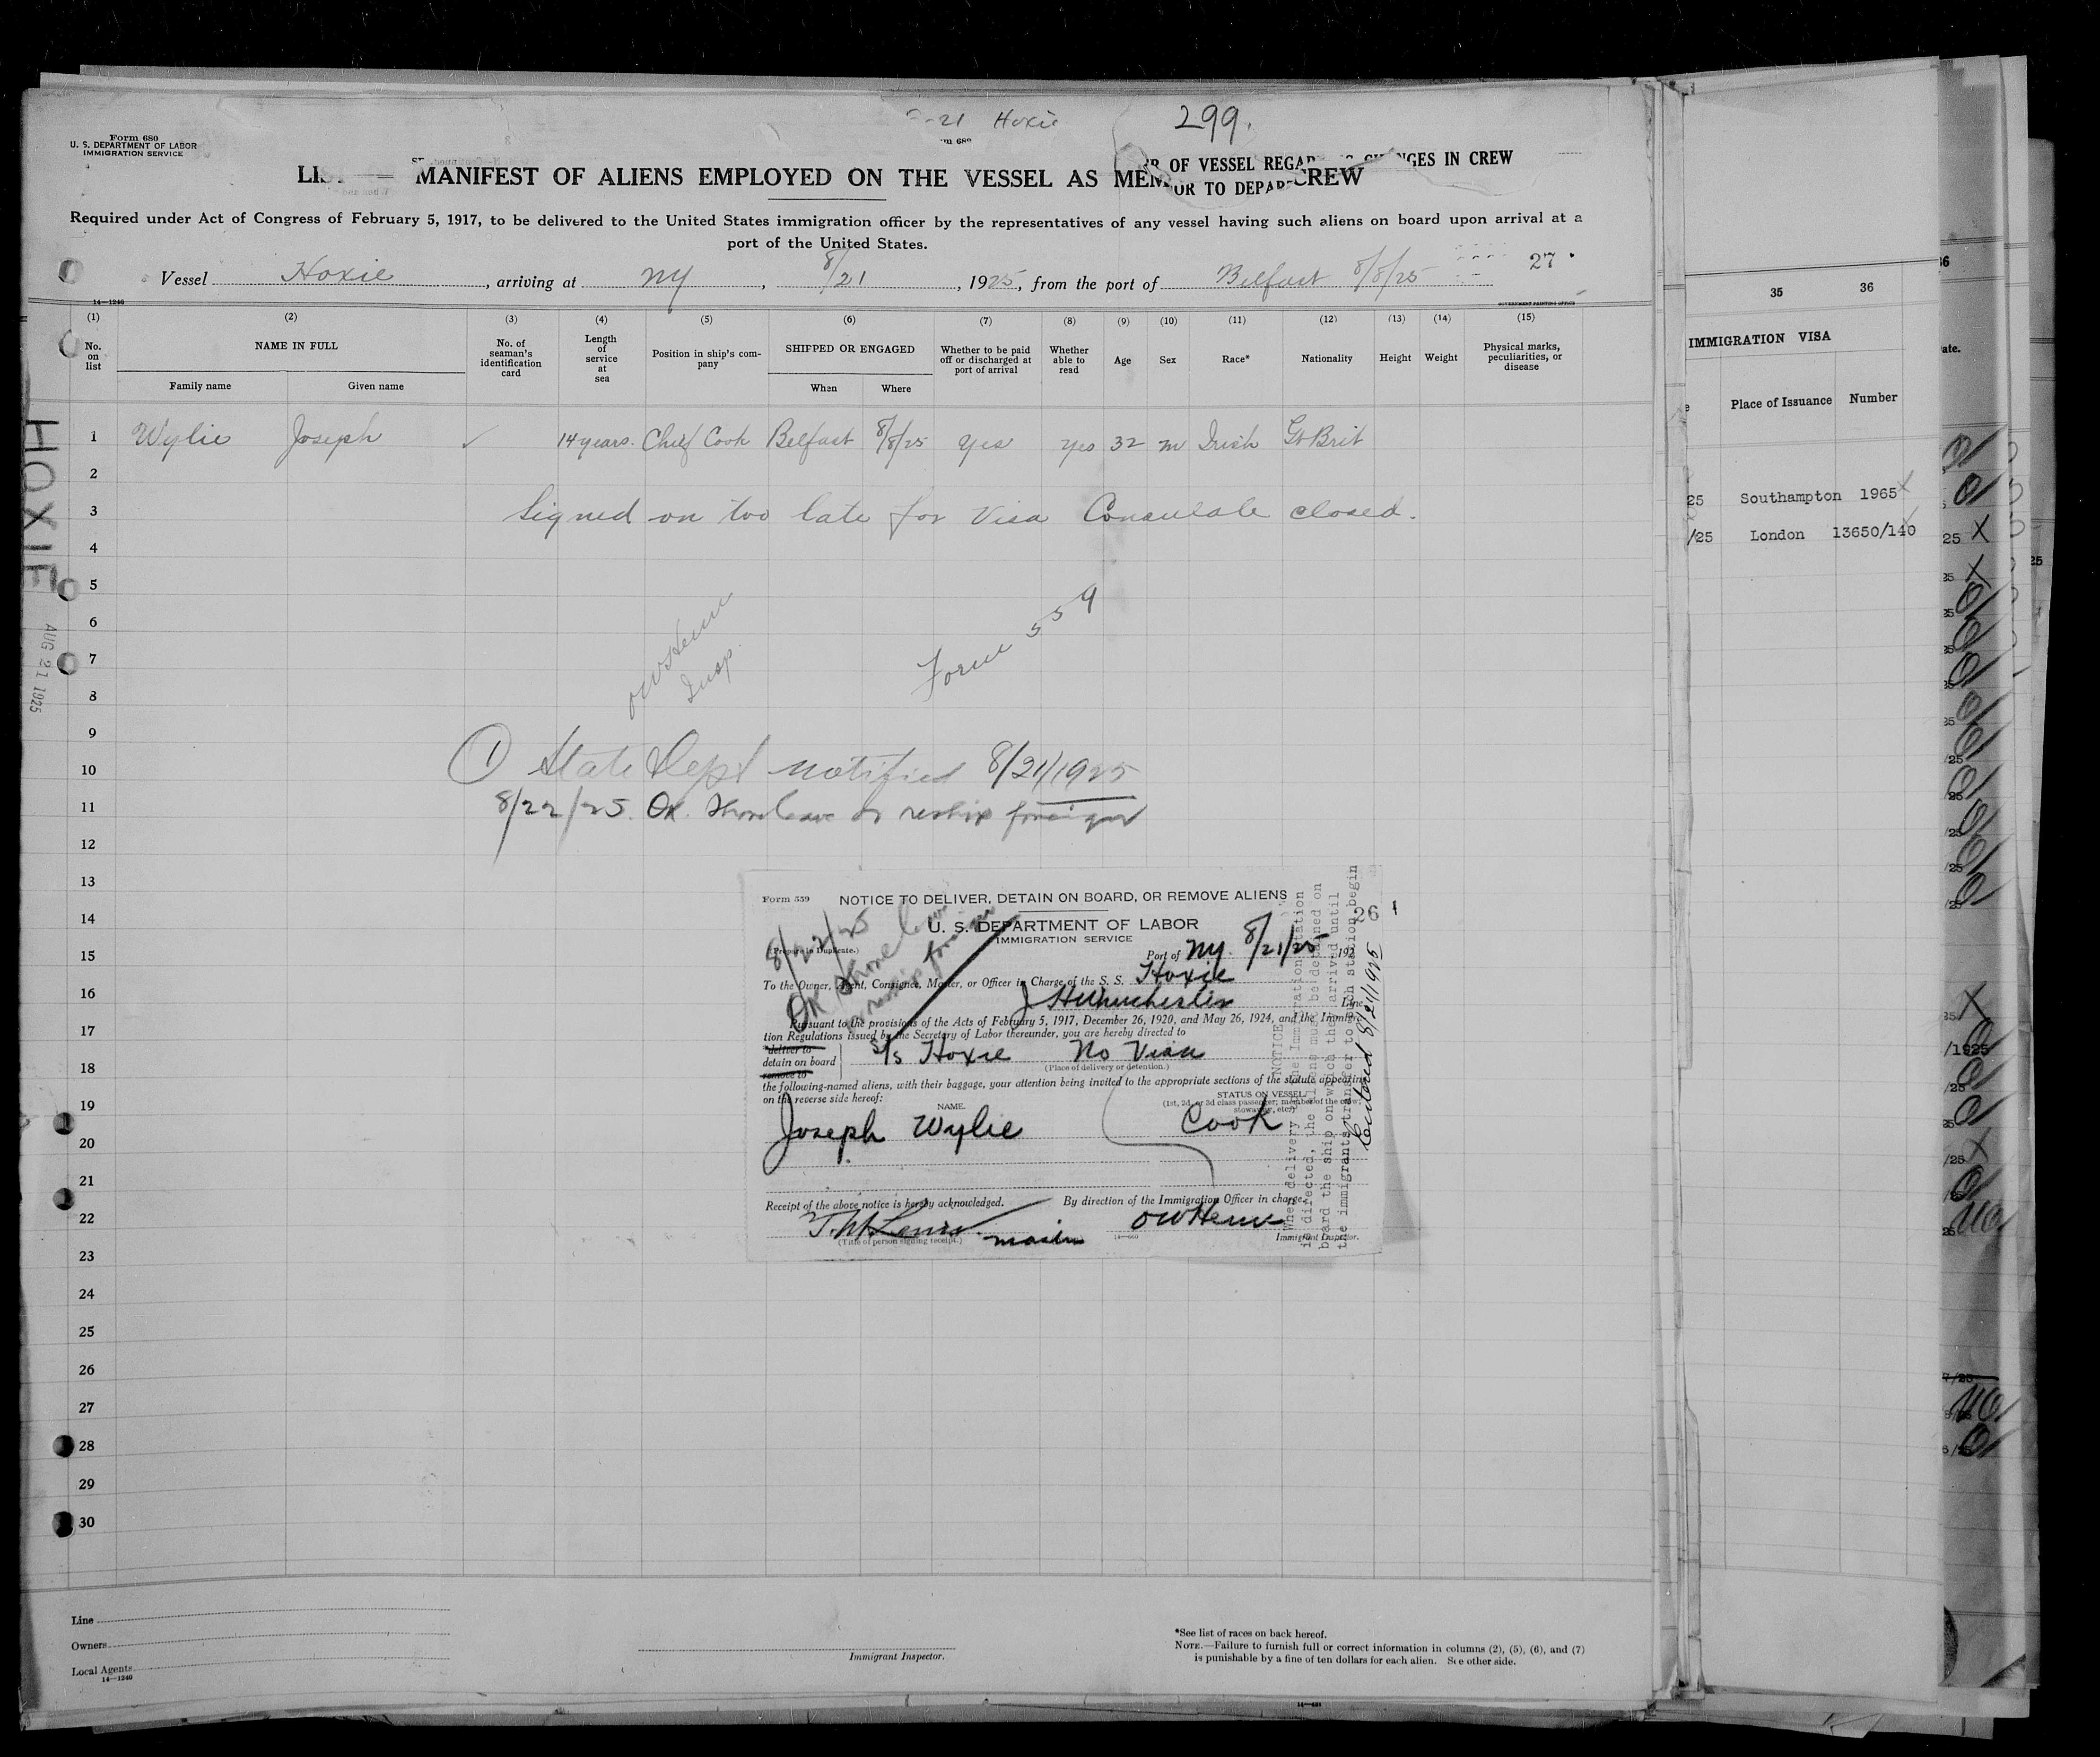 -21 Hoxie 299.
Form 680
U. S. DEPARTMENT OF LABOR
IMMIGRATION SERVICE
MANIFEST OF ALIENS EMPLOYED ON THE VESSEL AS CREW
OF VESSEL IN CREW
OR TO
Required under Act of Congress of February 5, 1917, to be delivered to the United States immigration officer by the representatives of any vessel having such aliens on board upon arrival at a
port of the United States.
Vessel Hoxie, arriving at ny, 8/21, 1925, from the port of Belfast 8/8/25 27
14—1240 GOVERNMENT PRINTING OFFICE
(1) (2) (3) (4) (5) (6) (7) (8) (9) (10) (11) (12) (13) (14) (15)
No. on list NAME IN FULL No. of seaman's identification card Length of service at sea Position in ship's company SHIPPED OR ENGAGED Whether to be paid off or discharged at port of arrival Whether able to read Age Sex Race* Nationality Height Weight Physical marks, peculiarities, or disease
Family name Given name When Where
1 Wylie Joseph ✓ 14 years. Chief Cook Belfast 8/8/25 Yes yes 32 m Irish Gt Brit
2
3 Signed on too late for Visa Consulate closed.
4
5
6
7
8
9
10
11
12
13
14
15
16
17
18
19
20
21
22
23
24
25
26
27
28
29
30
HOXIE
AUG 21 1925
OW Heme
Insp.
Form 559
① State Dept notified 8/21/1925
8/22/25. OK. Shore leave or reship foreign
Form 559 NOTICE TO DELIVER, DETAIN ON BOARD, OR REMOVE ALIENS
U. S. DEPARTMENT OF LABOR
IMMIGRATION SERVICE
26
(Prepare in Duplicate.)
8/22/25
OK Shore leave
or reship foreign
Port of ny. 8/21/25 192
To the Owner, Agent, Consignee, Master, or Officer in Charge of the S. S. Hoxie
Line
Pursuant to the provisions of the Acts of February 5, 1917, December 26, 1920, and May 26, 1924, and the Immigra-
tion Regulations issued by the Secretary of Labor thereunder, you are hereby directed to
deliver to
detain on board S/s Hoxie No Visa
remove to
(Place of delivery or detention.)
the following-named aliens, with their baggage, your attention being invited to the appropriate sections of the statute appearing
on the reverse side hereof:
NAME. STATUS ON VESSEL.
(1st, 2d, or 3d class passenger; member of the crew; stowaway, etc.)
Joseph Wylie Cook
Receipt of the above notice is hereby acknowledged. By direction of the Immigration Officer in charge.
OW Heme
(Title of person signing receipt.) 14—660 Immigrant Inspector.
NOTICE
When delivery to the Immigration Station
is directed, the aliens must be detained on
board the ship on which they arrived until
the immigrants transfer to such station begin
Entered 8/21/1925
Line
Owners
Local Agents
14—1240
Immigrant Inspector.
*See list of races on back hereof.
NOTE.—Failure to furnish full or correct information in columns (2), (5), (6), and (7)
is punishable by a fine of ten dollars for each alien. See other side.
35 36
IMMIGRATION VISA
Place of Issuance Number
25 Southampton 1965
/25 London 13650/140